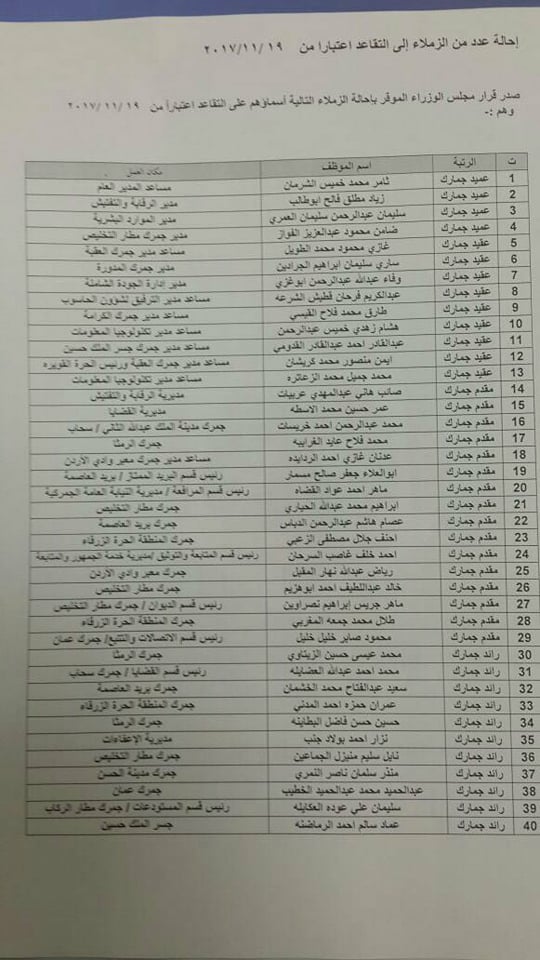 إحالة عدد من الزملاء إلى التقاعد اعتبارا من ٢٠١٧/١١/١٩
صدر قرار مجلس الوزراء الموقر بإحالة الزملاء التالية أسماؤهم على التقاعد اعتباراً من ٢٠١٧/١١/١٩
وهم :-
ت الرتبة اسم الموظف مكان العمل
1 عميد جمارك ثامر محمد خميس الشرمان مساعد المدير العام
2 عميد جمارك زياد مطلق فالح ابوطالب مدير الرقابة والتفتيش
3 عميد جمارك سليمان عبدالرحمن سليمان العمري مدير الموارد البشرية
4 عميد جمارك ضامن محمود عبدالعزيز الفواز مدير جمرك مطار التخليص
5 عقيد جمارك غازي محمود محمد الطويل مساعد مدير جمرك العقبة
6 عقيد جمارك ساري سليمان ابراهيم الجرادين مدير جمرك المدورة
7 عقيد جمارك وفاء عبدالله عبدالرحمن ابوغزي مدير إدارة الجودة الشاملة
8 عقيد جمارك عبدالكريم فرحان قطيش الشرعه مساعد مدير الترفيق لشؤون الحاسوب
9 عقيد جمارك طارق محمد فلاح القيسي مدير جمرك الكرامة
10 عقيد جمارك هشام زهدي خميس عبدالرحمن مساعد مدير تكنولوجيا المعلومات
11 عقيد جمارك عبدالقادر احمد عبدالقادر القدومي مساعد مدير جمرك جسر الملك حسين
12 عقيد جمارك ايمن منصور محمد كريشان مساعد مدير جمرك العقبة ورئيس الحرة القويره
13 عقيد جمارك محمد جميل محمد الزعاتره مساعد مدير تكنولوجيا المعلومات
14 مقدم جمارك صائب هاني عبدالمهدي عربيات مديرية الرقابة والتفتيش
15 مقدم جمارك عمر حسين محمد الاسطه مديرية القضايا
16 مقدم جمارك محمد عبدالرحمن احمد خريسات جمرك مدينة الملك عبدالله الثاني / سحاب
17 مقدم جمارك محمد فلاح عايد الغرايبه جمرك الرمثا
18 مقدم جمارك عدنان غازي احمد الردايده مساعد مدير جمرك معبر وادي الأردن
19 مقدم جمارك ابوالعلاء جعفر صالح مسمار رئيس قسم البريد الممتاز / بريد العاصمة
20 مقدم جمارك ماهر احمد عواد القضاه رئيس قسم المرافعة / مديرية النيابة العامة الجمركية
21 مقدم جمارك ابراهيم محمد عبدالله الحياري جمرك مطار التخليص
22 مقدم جمارك عصام هاشم عبدالرحمن الدباس جمرك بريد العاصمة
23 مقدم جمارك احنف جلال مصطفى الزعبي جمرك المنطقة الحرة الزرقاء
24 مقدم جمارك احمد خلف غاصب السرحان رئيس قسم المتابعة والتوثيق /مديرية خدمة الجمهور والمتابعة
25 مقدم جمارك رياض عبدالله نهار المقبل جمرك معبر وادي الأردن
26 مقدم جمارك خالد عبداللطيف احمد ابوهزيم جمرك مطار التخليص
27 مقدم جمارك ماهر جريس إبراهيم نصراوين رئيس قسم الديوان / جمرك مطار التخليص
28 مقدم جمارك طلال محمد جمعه المغربي جمرك المنطقة الحرة الزرقاء
29 مقدم جمارك محمود صابر خليل خليل رئيس قسم الاتصالات والتتبع/ جمرك عمان
30 رائد جمارك محمد عيسى حسين الزيتاوي جمرك الرمثا
31 رائد جمارك محمد احمد عبدالله العضايله رئيس قسم القضايا / جمرك سحاب
32 رائد جمارك سعيد عبدالفتاح محمد الخشمان جمرك بريد العاصمة
33 رائد جمارك عمران حمزه احمد المدني جمرك المنطقة الحرة الزرقاء
34 رائد جمارك حسين حسن فاضل البطاينه جمرك الرمثا
35 رائد جمارك نزار احمد بولاد جنب مديرية الإعفاءات
36 رائد جمارك نايل سليم منيزل الجماعين جمرك مطار التخليص
37 رائد جمارك منذر سلمان ناصر النمري جمرك مدينة الحسن
38 رائد جمارك عبدالحميد محمد عبدالحميد الخطيب جمرك عمان
39 رائد جمارك سليمان علي عوده العكايله رئيس قسم المستودعات / جمرك مطار الركاب
40 رائد جمارك عماد سالم احمد الرماضنه جسر الملك حسين